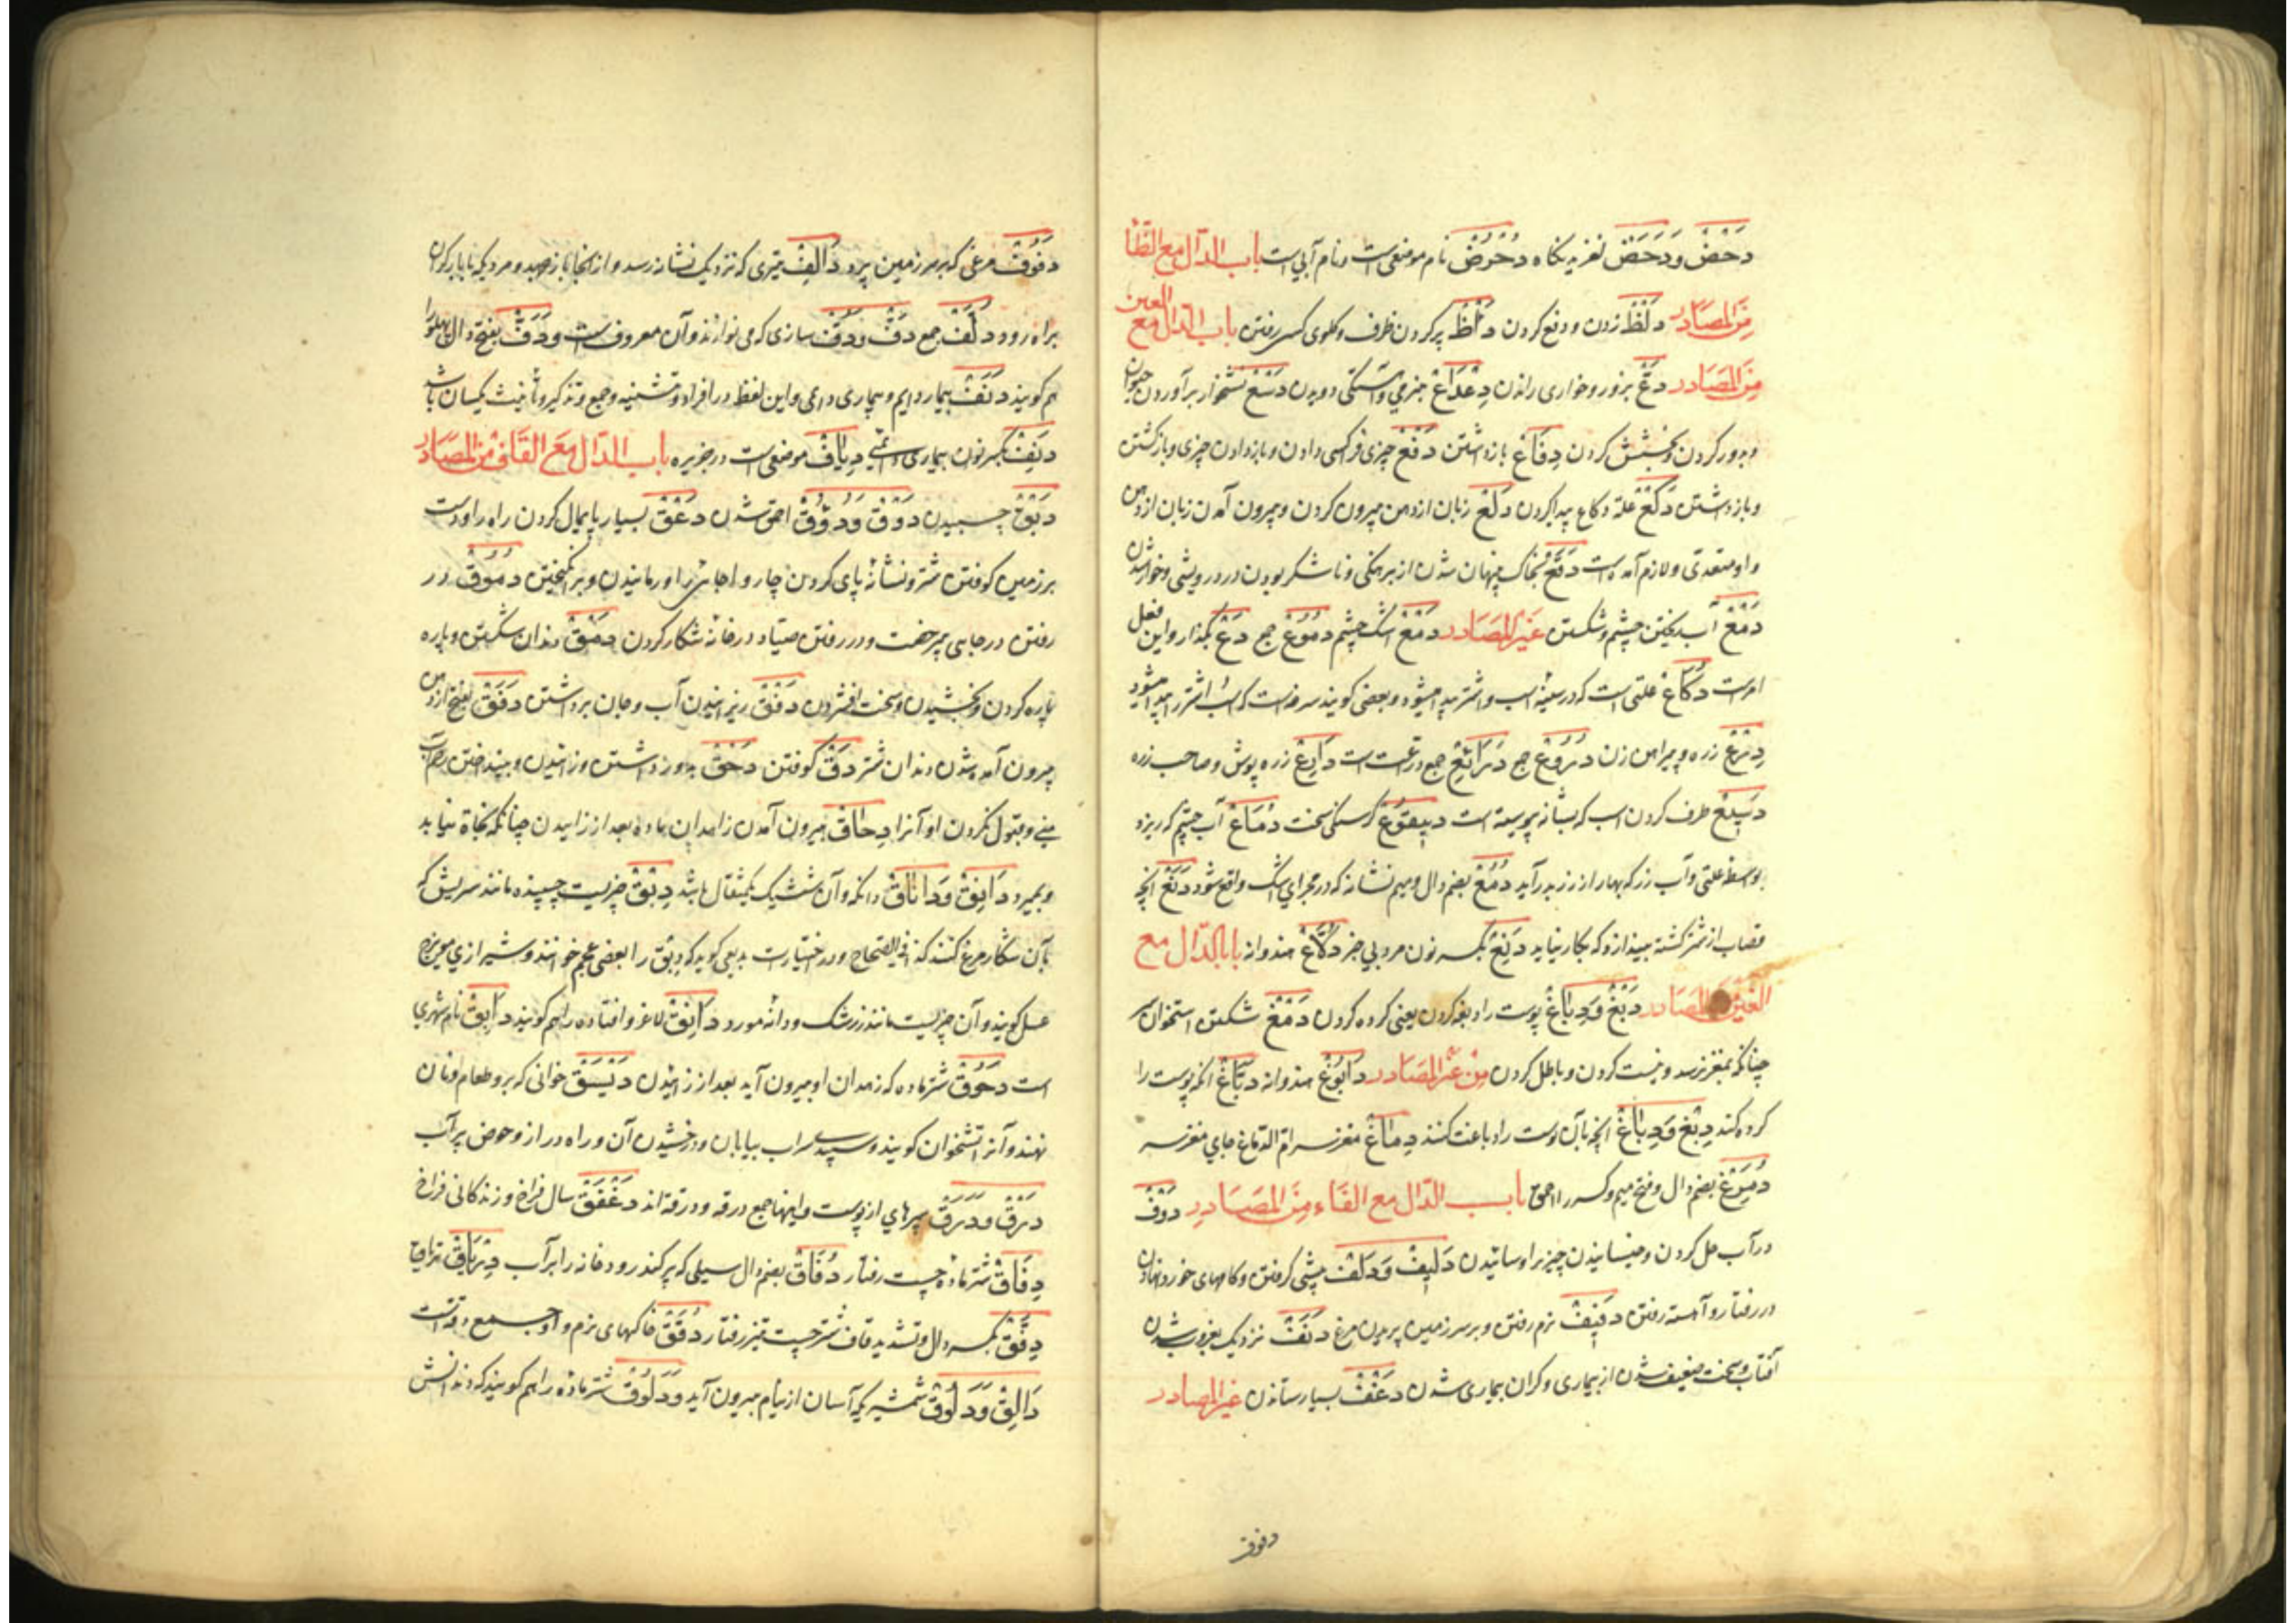 دَحْضْ وَدَحَضْ لغزیدنگاه دُحْرُضْ نام موضعی است و نام آبی است باب الدال مع الظا
مِنَ المصَادر دَلْظْ زدن و دفع کردن دَلْظْ پر کردن ظرف و گلوی کسی گرفتن باب الدال مع العین
مِنَ المصَادر دَعْ بزور و خواری راندن دِعْدَاعْ بنرمی و آهستگی دویدن دَسْعْ نشخوار برآوردن حیوان
و دور کردن و بخشش کردن دِفَاعْ بازداشتن دَفْعْ چیزی فراکسی دادن و بازدادن چیزی و بازگشتن
و بازداشتن دَکْعْ علة دکاع پیدا کردن دَلْعْ زبان از دهن بیرون کردن و بیرون آمدن زبان از دهن
و او متعدی و لازم آمده است دَقَعْ بخاک پنهان شدن از برهنگی و ناشکر بودن در درویشی و خوار شدن
دَمْعْ آب ریختن چشم و شکستن غیر المصَادر دَمْعْ اشک چشم دُمُوعْ جمع دَعْ بگذار و این فعل
امرست دُکَاعْ علتی است که در سینه اسب و اشتر پیدا میشود و بعضی گویند سرفه است که اسب و اشتر را پیدا میشود
دِرْعْ زره و پیراهن زن دُرُوعْ جمع دَرَائِعْ جمع درعت است دَارِعْ زره پوش و صاحب زره
دَسِیعْ طرف گردن اسب که بشانه پیوسته است دَیقُوعْ گرسنگی سخت دُمَاعْ آب چشم که ریزد
بواسطه علتی و آب رز که بهار از رز بدر آید دُمُعْ بضم دال و میم نشانه که در مجرای اشک واقع شود دَنَعْ آنچه
قصاب از شتر کشته بیندازد که بکار نیاید دَنِعْ بکسر نون مرد بی خیر دُلَّاعْ هندوانه باب الدال مع
الغین المصَادر دَبْغْ وَدِبَاغْ پوست را دباغه کردن یعنی کرده کردن دَمْغْ شکستن استخوان سر
چنانکه بمغز رسد و نیست کردن و باطل کردن مِنْ غیر المصَادر دَابُوغْ هندوانه دَبَّاغْ آنکه پوست را
کرده کند دِبْغْ وَدِبَاغْ آنچه بآن پوست را دباغت کنند دِمَاغْ مغز سر ام الدماغ جای مغز سر
دُمَرِغْ بضم دال و فتح میم و کسر را احمق باب الدال مع الفاء مِنَ المصَادرِ دَوْفْ
در آب حل کردن و خیسانیدن چیز را و سائیدن دَلِیفْ وَدَلْفْ پیشی گرفتن و گامهای خورد نهادن
در رفتار و آهسته رفتن دَفِیفْ نرم رفتن و بر سر زمین پریدن مرغ دَنَفْ نزدیک بغروب شدن
آفتاب و سخت ضعیف شدن از بیماری و گران بیماری شدن دَغْفْ بسیار ستاندن غیر المصادر
دفوف
دَفُوفْ مرغی که بر سر زمین پرد دَالِفْ تیری که نزدیک نشانه رسد و از آنجا باز جهد و مردیکه با بار گران
براه رود دُلَّفْ جمع دَفْ و دُفْ سازی که می نوازند و آن معروف است و دَفْ بفتح دال پهلو را
هم گویند دَنَفْ بیمار دایم و بیماری دایمی و این لفظ در افراد و تثنیه و جمع و تذکیر و تأنیث یکسان باشد
دَنِفْ بکسر نون بیماری دائمی دِیَافْ موضعی است در جزیره باب الدال مَع القاف مِنَ المصَادر
دَبَقْ چسبیدن دَوْقْ وَدُوُوقْ احمق شدن دَعْقْ بسیار پایمال کردن راه را و دست
بر زمین کوفتن شتر و نشانه پای کردن چاروا جائی را و رمانیدن و برانگیختن دُمُوقْ در
رفتن در جایی بیرخصت و در رفتن صیاد در خانه شکار کردن دَهْقْ دندان شکستن و پاره
پاره کردن و بخشیدن و سخت افشردن دَفْقْ ریزانیدن آب و جان برداشتن دَفَقْ بفتح از دهن
بیرون آمده شدن دندان شتر دَقْ کوفتن دَحْقْ دور داشتن و زائیدن و بینداختن رحم آب
منی و قبول نکردن او آنرا دِحَاقْ بیرون آمدن زاهدان ماده بعد از زائیدن چنانکه نجاة نیابد
و بمیرد دَانِقْ وَدَانَاقْ دانگ و آن شش یک مثقال باشد دِبْقْ چیزیست چسبنده مانند سریش که
بآن شکار مرغ کنند کذا فی الصحاح و در اختیارات بدیعی گوید که دبق را بعضی عجم خوانند و شیرازی مویزج
عسل گویند و آن چیزیست مانند زرشک و دانه مورد دَانِقْ لاغر و افتاده را هم گویند دَابِقْ نام شهری
است دَحُوقْ شتر ماده که زهدان او بیرون آید بعد از زائیدن دَیْسَقْ خوانی که برو طعام و نان
نهند و آنرا تشتخوان گویند و سپیدی سراب بیابان و درخشیدن آن و راه دراز و حوض پر آب
دَرْقْ وَدَرَقْ سپرهای از پوست و اینها جمع درقه و درقه اند دَغْفَقْ سال فراخ و زندگانی فراخ
دِفَاقْ شتر ماده چست رفتار دُفَاقْ بضم دال سیلی که پر کند رودخانه را بر آب دِرْیَاقْ تریاق
دِفَّقْ بکسر دال و تشدید قاف شتر چست تیز رفتار دُقَقْ خاکهای نرم و او جمع دقه است
دَالِقْ وَدَلُوقْ شمشیریکه آسان از نیام بیرون آید وَدَلُوقْ شتر ماده را هم گویند که دندانش